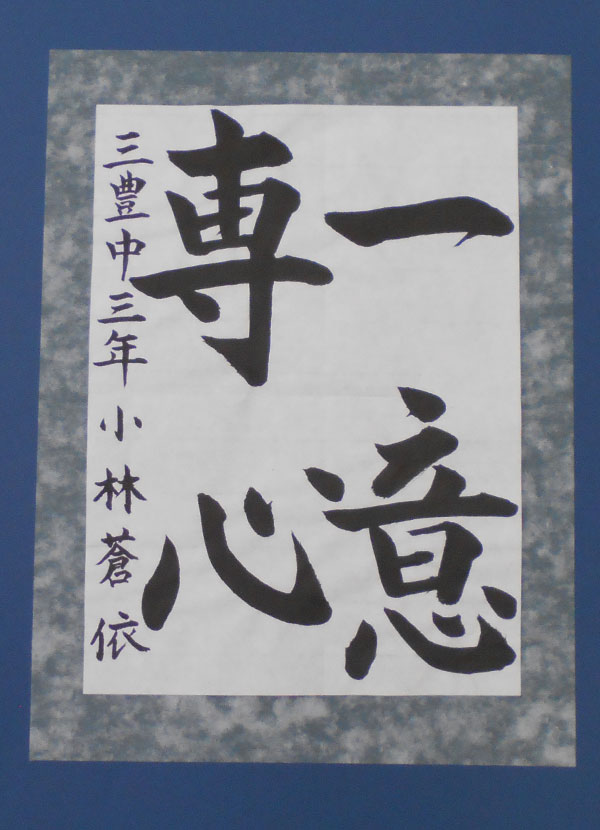 一意
専心
三豊中三年小林蒼依